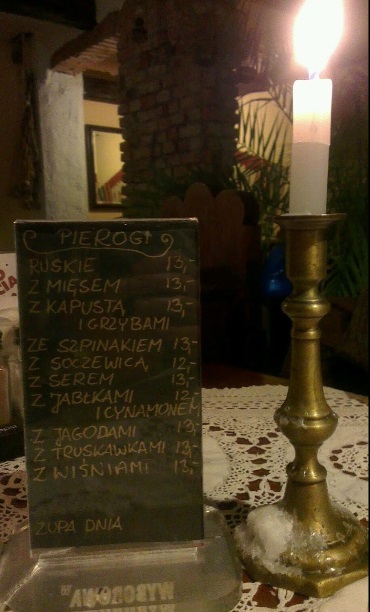 PIEROGI
RUSKIE 13,-
Z MIĘSEM 13,-
Z KAPUSTĄ 13,-
I GRZYBAMI
ZE SZPINAKIEM 13,-
Z SOCZEWICĄ 12,-
Z SEREM 13,-
Z JABŁKAMI 12,-
I CYNAMONEM
Z JAGODAMI 13,-
Z TRUSKAWKAMI 13,-
Z WIŚNIAMI 13,-
ZUPA DNIA
WYBOROWA